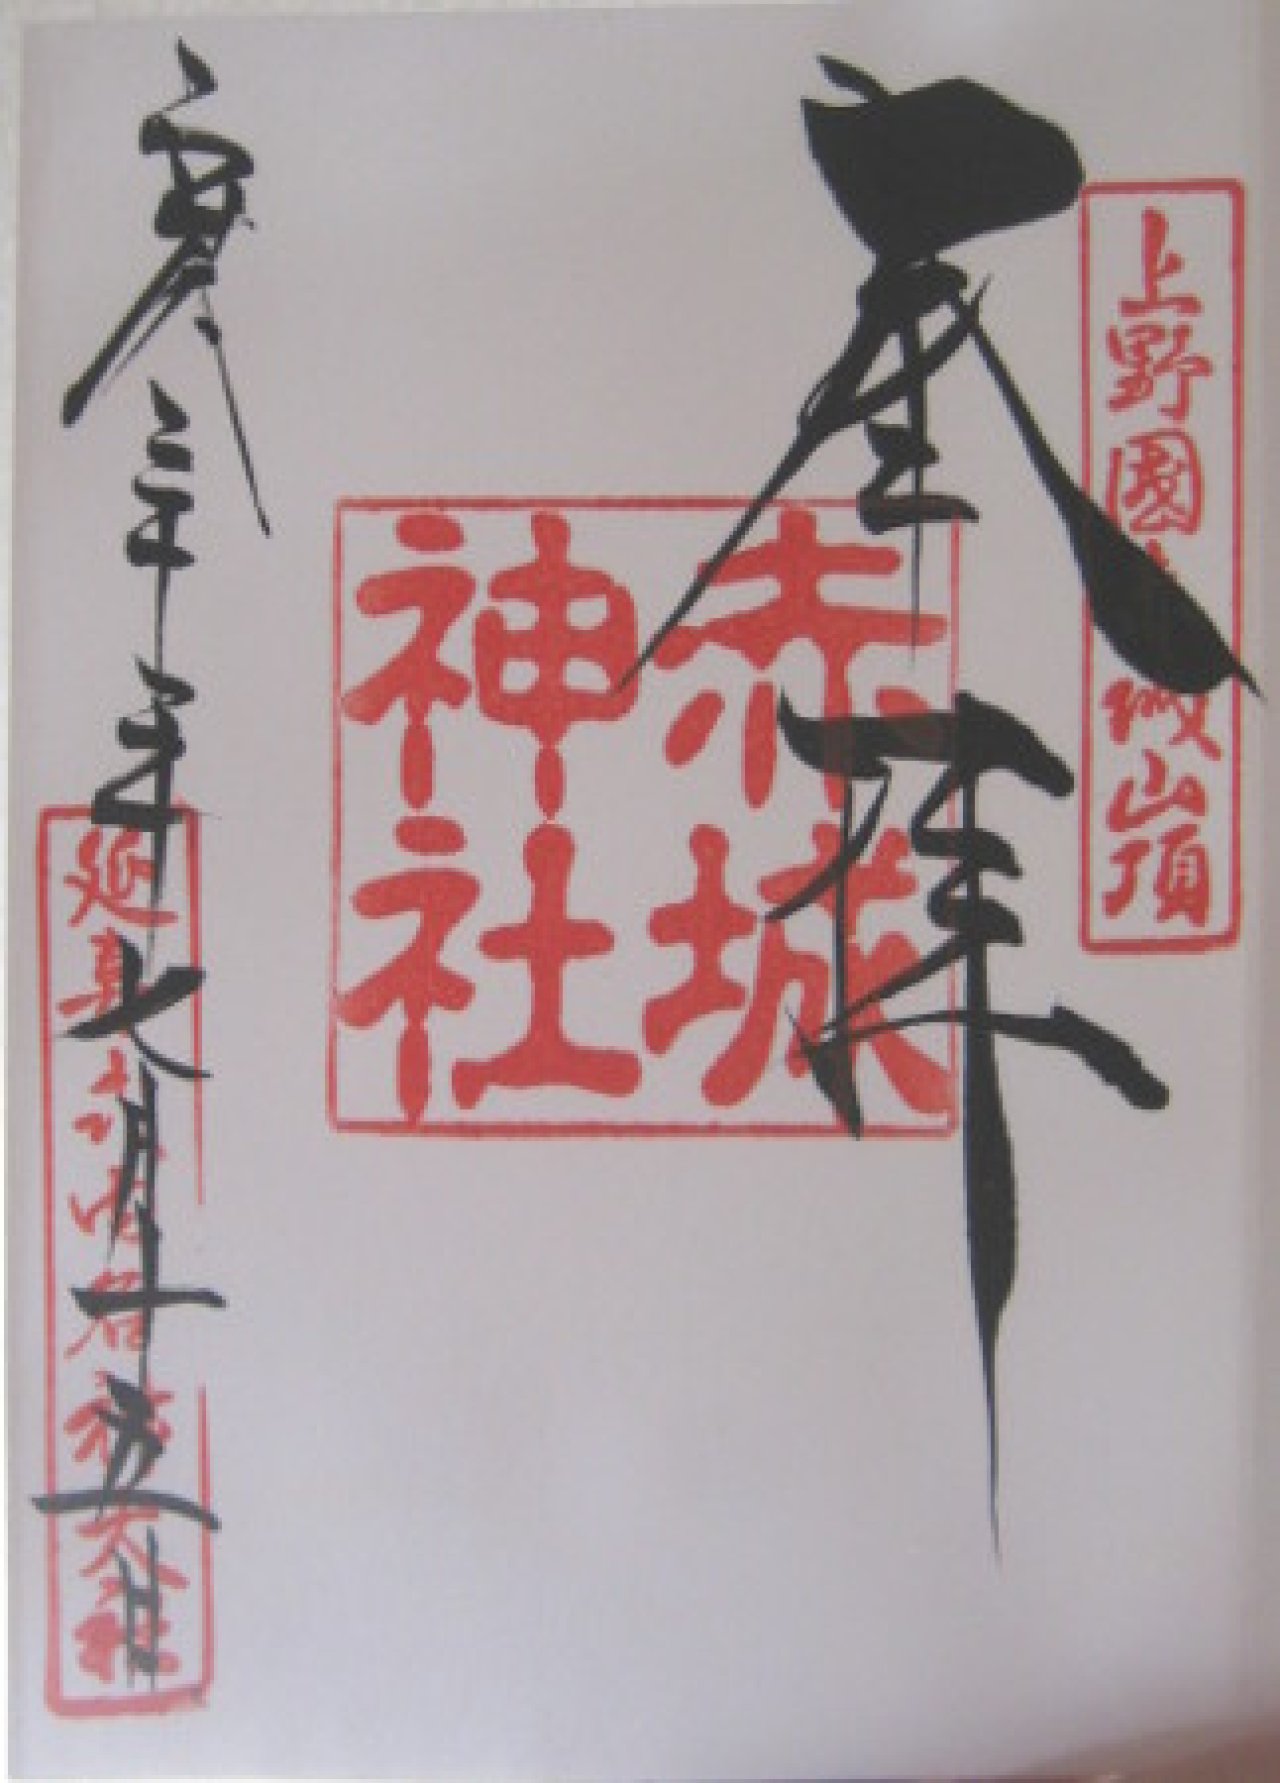 上野國赤城山頂
奉拝
赤城
神社
三十年七月十五日
延喜式内名神大社